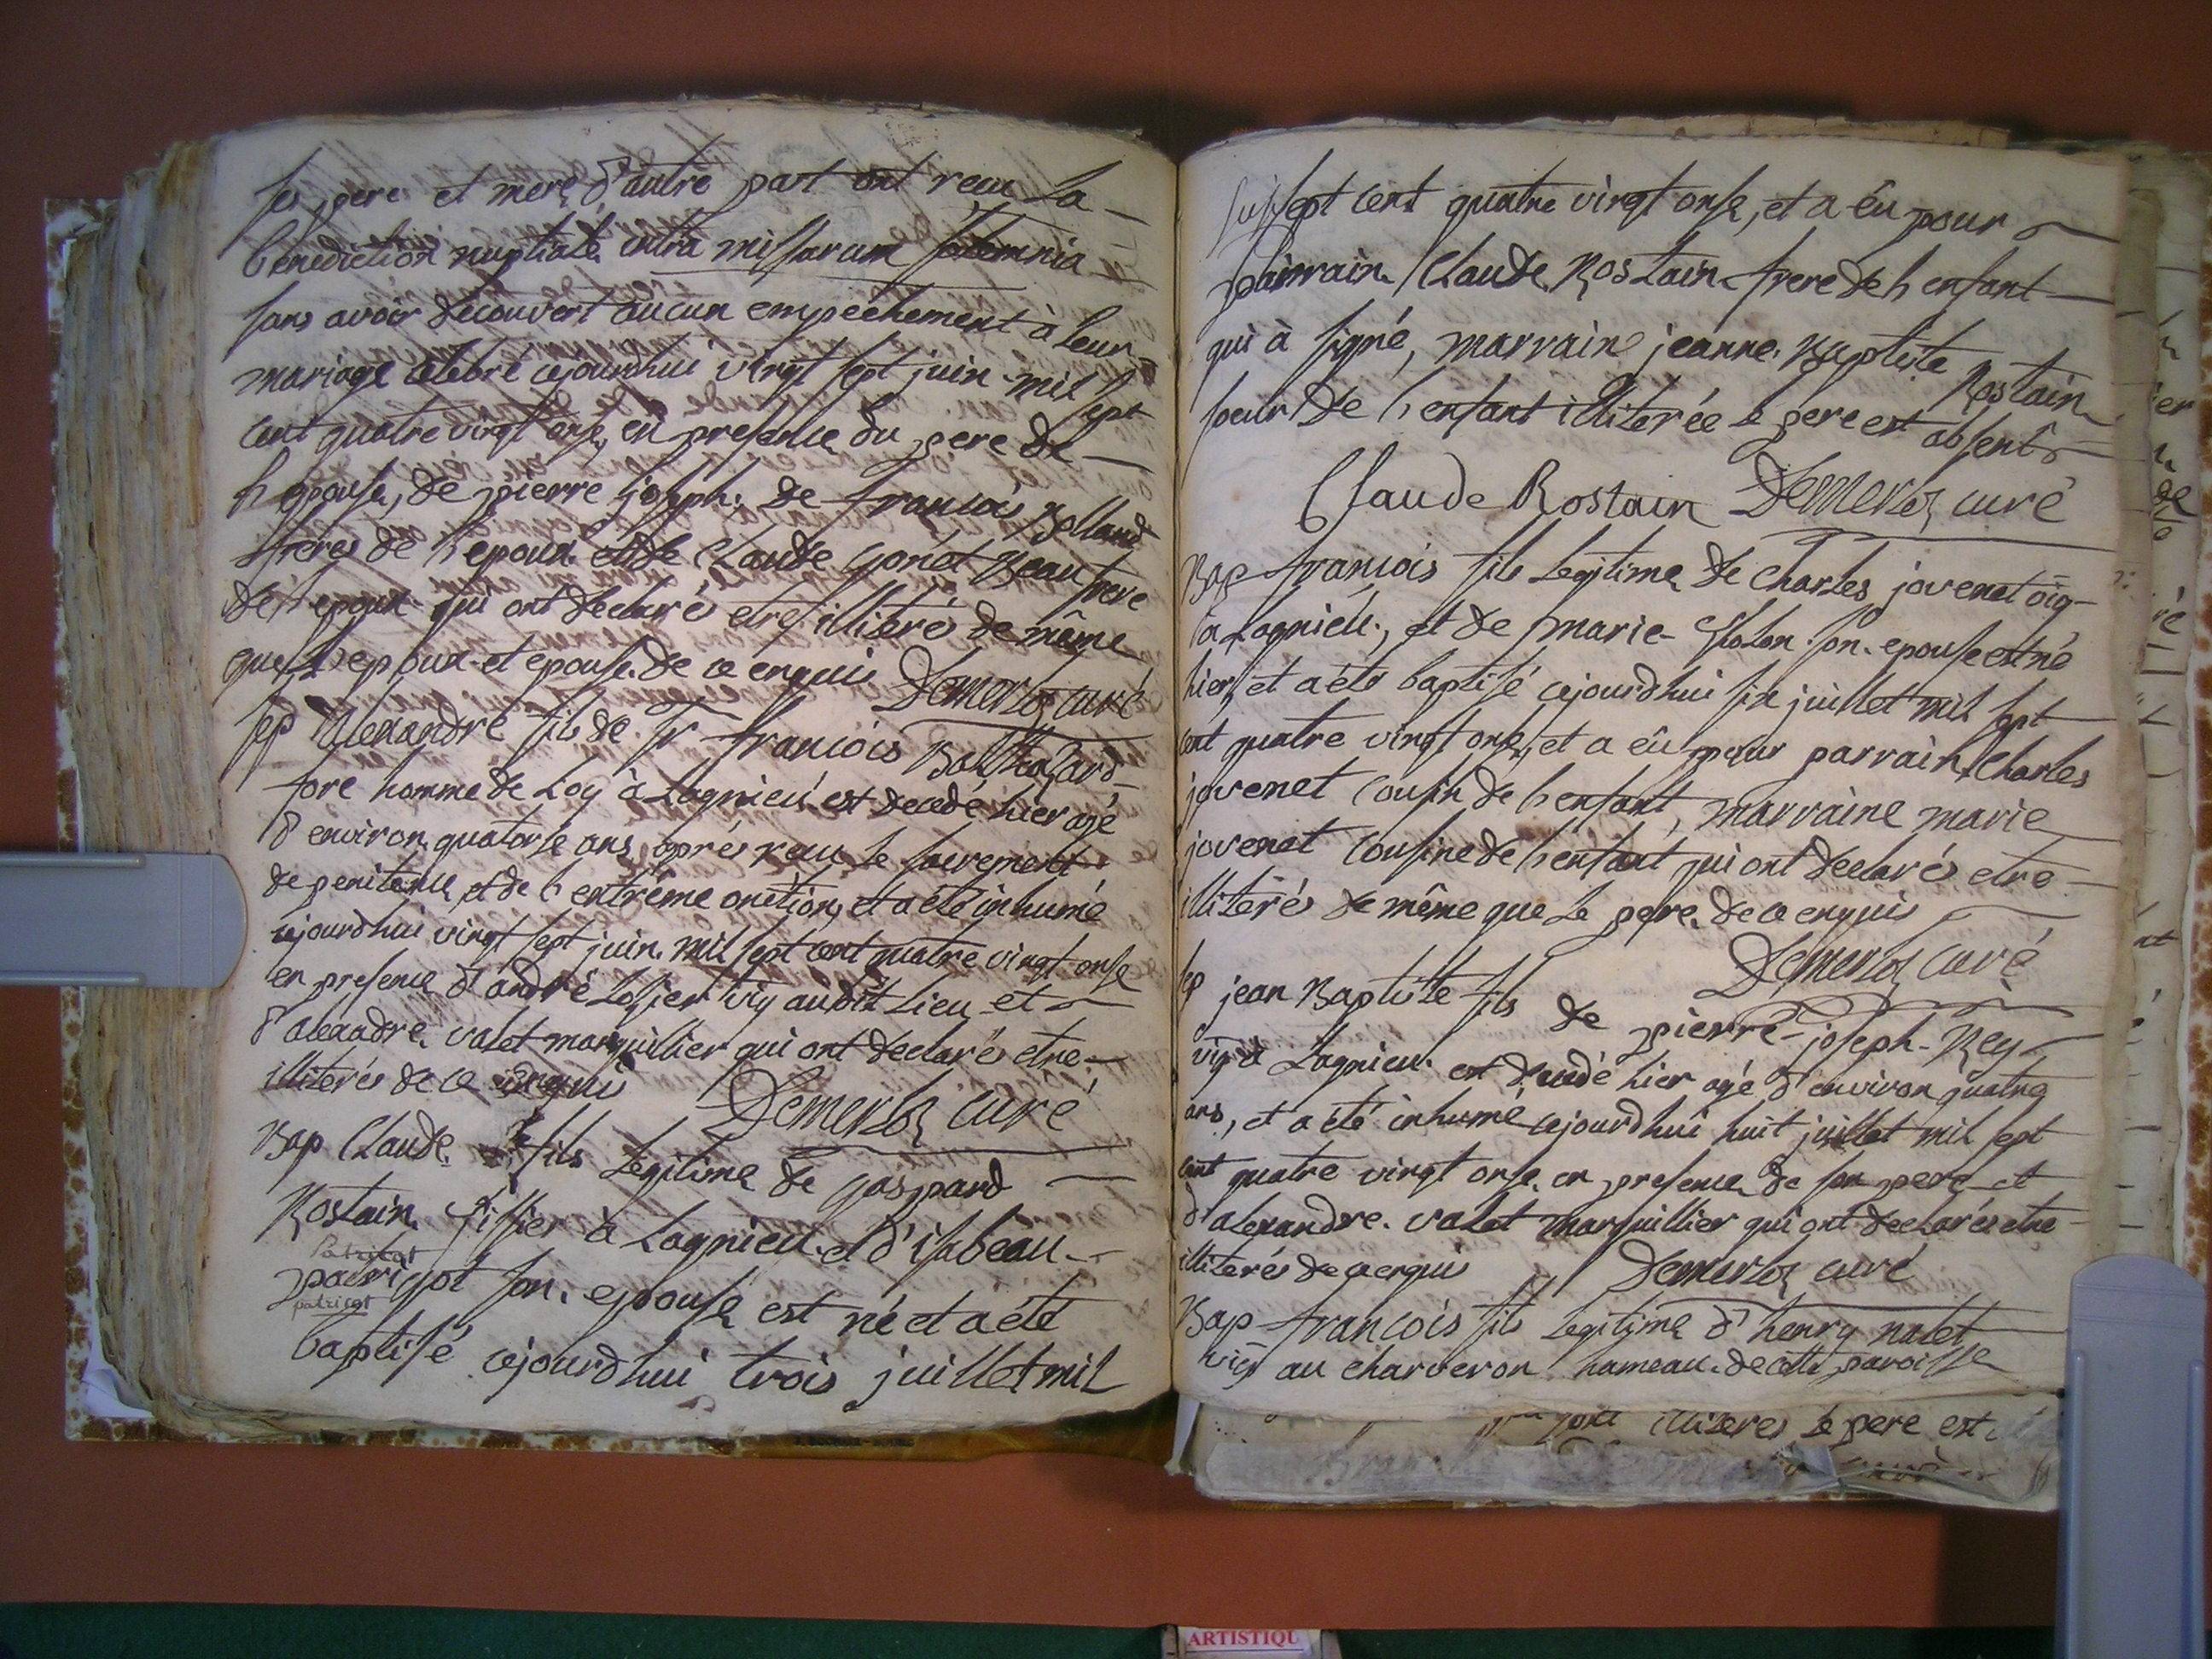 ses pere et mere d'autre part ont recu la
benediction nuptiale intra missarum solemnia
sans avoir decouvert aucun empechement à leur
mariage celebré cejourdhui vingt sept juin mil sept
cent quatre vingt onse, en presence du pere de
l'epouse, de pierre joseph, de francois Rolland
freres de l'epoux et de Claude gonet Beau frere
de l'epoux qui ont declarés etre illiterés de même
que l'epoux et epouse de ce enquis Demerloz curé
sep Alexandre fils de Sr francois Balthazard
fore homme de Loy à Lagnieu est decedé hier agé
d'environ quatorse ans, aprés recu le sacrement
de penitence, et de l'extrême onction, et a été inhumé
cejourdhui vingt sept juin mil sept cent quatre vingt onse
en presence d'andré Logier vig audit Lieu et
d'alexandre valet marguillier qui ont declarés etre
illiterés de ce enquis Demerloz curé
Bap Claude fils Legitime de gaspard
Rostain tissier à Lagnieu et d'isabeau
Patricot
patricot
patrigot son epouse est né et a été
baptisé cejourdhui trois juillet mil
sept cent quatre vingt onse, et a êu pour
parrain Claude Rostain frere de l'enfant
qui à signé, marraine jeanne Baptiste Rostain
soeur de l'enfant illiterée le pere est absent
Claude Rostain Demerloz curé
Bap francois fils Legitime de Charles jovenet vig
à Lagnieu, et de marie son epouse est né
hier, et a été baptisé cejourdhui six juillet mil sept
cent quatre vingt onse, et a êu pour parrain Charles
jovenet cousin de l'enfant, marraine marie
jovenet cousine de l'enfant qui ont declarés etre
illiterés de même que le pere de ce enquis
Demerloz curé
sep jean Baptiste fils de pierre-joseph-Rey
vig à Lagnieu est decedé hier agé d'environ quatre
ans, et a été inhumé cejourdhui huit juillet mil sept
cent quatre vingt onse en presence de son pere et
d'alexandre valet marguillier qui ont declarés etre
illiterés de ce enquis Demerloz curé
Bap francois fils Legitime d'henry nalet
vig au charveron hameau de cette paroisse
illiterés le pere est
ARTISTIQU